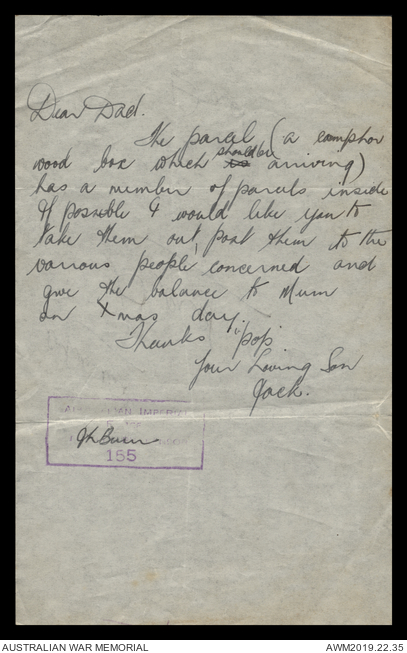 Dear Dad.
The parcel (a camphor
wood box which should be arriving)
has a number of parcels inside
If possible I would like you to
take them out post them to the
various people concerned and
give the balance to Mum
on Xmas day.
Thanks "pop"
Your Loving Son
Jack.
AUSTRALIAN IMPERIAL
155
AUSTRALIAN WAR MEMORIAL
AWM2019.22.35